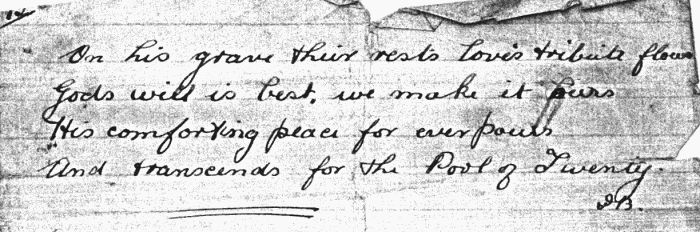 14
On his grave their rests love's tribute flow
Gods will is best, we make it ours
His comforting peace for ever pours
And transcends for the Pool of Twenty.
J.B.